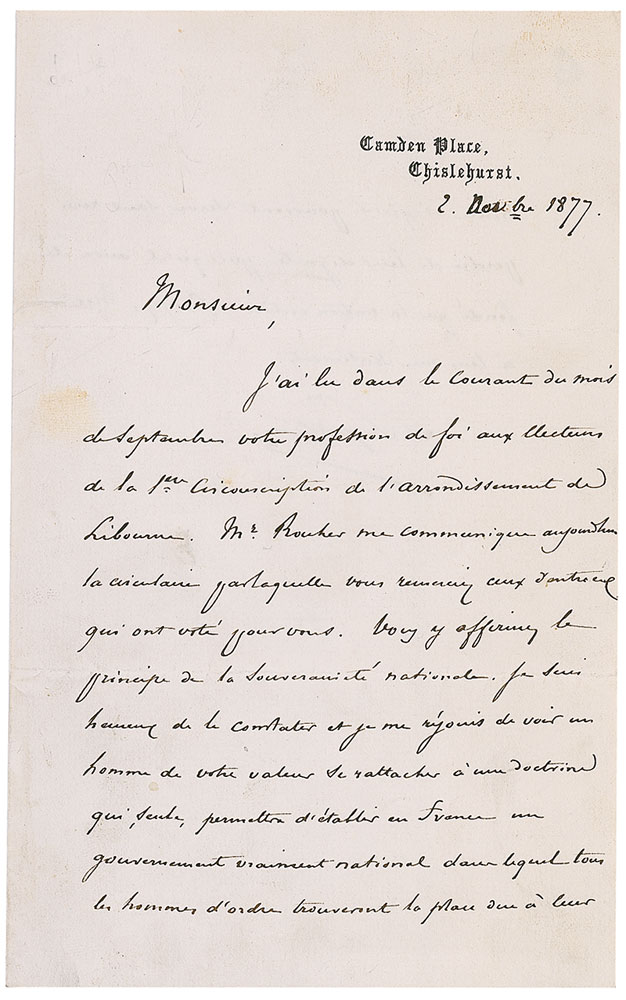 Camden Place,
Chislehurst.
2. Novbre 1877.
Monsieur,
J'ai lu dans le courant du mois
de Septembre votre profession de foi aux Electeurs
de la 1ère Circonscription de l'arrondissement de
Libourne. Mr. Rouher me communique aujourd'hui
la circulaire par laquelle vous remerciez ceux d'entre eux
qui ont voté pour vous. Vous y affirmez le
principe de la Souveraineté nationale. Je suis
heureux de le constater et je me réjouis de voir un
homme de votre valeur se rattacher à une doctrine
qui, seule, permettra d'établir en France un
gouvernement vraiment national dans lequel tous
les hommes d'ordre trouveront la place due à leur